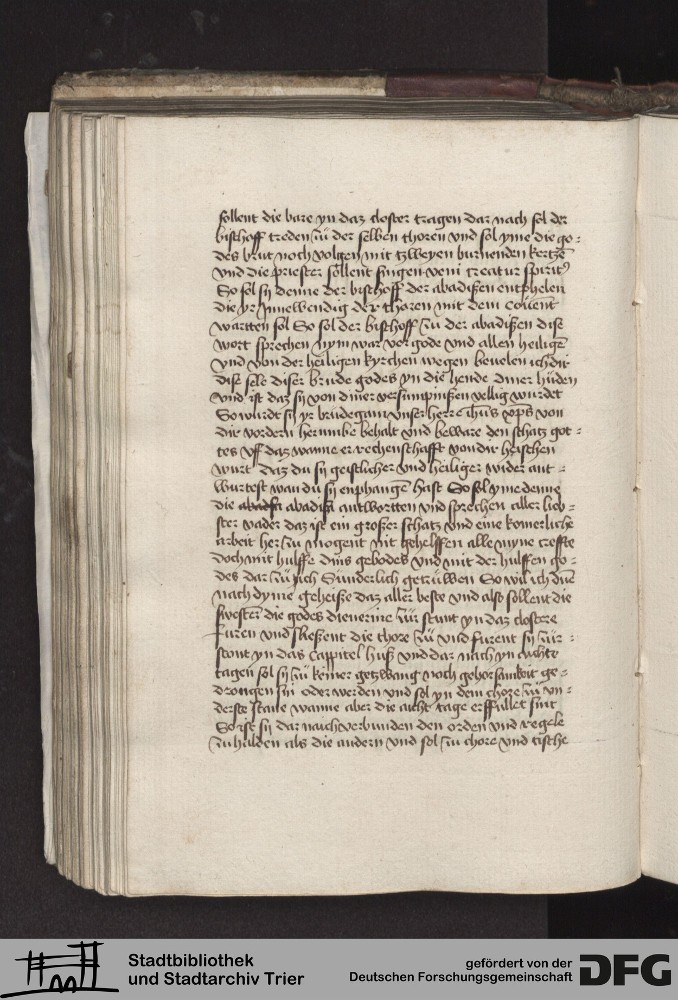 sollent die bare yn daz closter tragen dar nach sol der
bischoff treden zü der selben thoren vnd sol yme die go-
des brut noch volgen mit tzweyen burnenden kertzē
vnd die priester sollent singen veni creatur spiritꝰ
So sol sy denne der bischoff der abadißen entphelen
die yr Innewendig der thoren mit dem couēnt
wartten sol So sol der bischoff zu der abadißen dise
wort sprechen nym war vor gode vnd allen heiligē
vnd von der heiligen kyrchen wegen beuelen ich dir
dise sele diser brude godes yn die hende diner hüden
vnd ist daz sy von diner versumpnißen vellig wurdet
So wurdt sy yr brudegam vnser herre ihūs xp̄s von
dir vordern her umbe behalt vnd beware den schatz got-
tes vff daz wanne er rechenschafft von dir heischen
wurt daz du sy geistlicher vnd heiliger wider ant-
wurtest wan du sy enphangē hast So sol yme denne
die abadisa antwortten vnd sprechen aller lieb-
ster vader daz ist ein großer schatz vnd eine komerliche
arbeit her zu mogent nit gehelffen alle myne creffte
doch mit hulffe dins gebodes vnd mit der hulffen go-
des dar zü ich Sünderlich getrüwen So wil ich dūn
nach dyme geheiße daz aller beste vnd also sollent die
swestern die godes dienerine zür stunt yn daz clostere
furen vnd sließent die thore zü vnd furent sy zür
stont yn das Cappitel huß vnd dar nach yn achte
tagen sol sy zü keiner getzwang noch gehorsamkeit ge-
drongen sin oder werden vnd sol yn dem chore zü vn-
derste staile wanne aber die aicht tage erffullet sint
So ist sy dar naich verbunden den orden vnd regele
zu halden als die andern vnd sol zu chore vnd tische
Stadtbibliothek
und Stadtarchiv Trier
gefördert von der
Deutschen Forschungsgemeinschaft
DFG